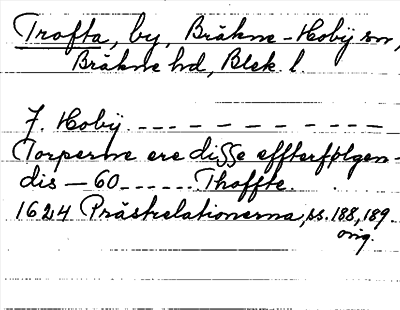 Trofta, by, Bräkne-Hoby sn,
Bräkne hd, Blek. l.
7. Hobÿ. --- - - - - - -
Torperne ere disse effterfølgen-
dis — 60 ------ Thoffte.
1624 Prästrelationerna, ss. 188, 189
orig.